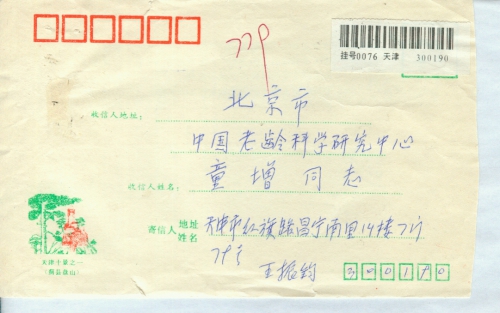 779
挂号0076 天津 300190
北京市
收信人地址:
中国老龄科学研究中心
收信人姓名:
童增同志
寄信人 地址 姓名
天津市红旗路昌宁南里14楼7门
王振钧
300190
天津十景之一
蓟县盘山